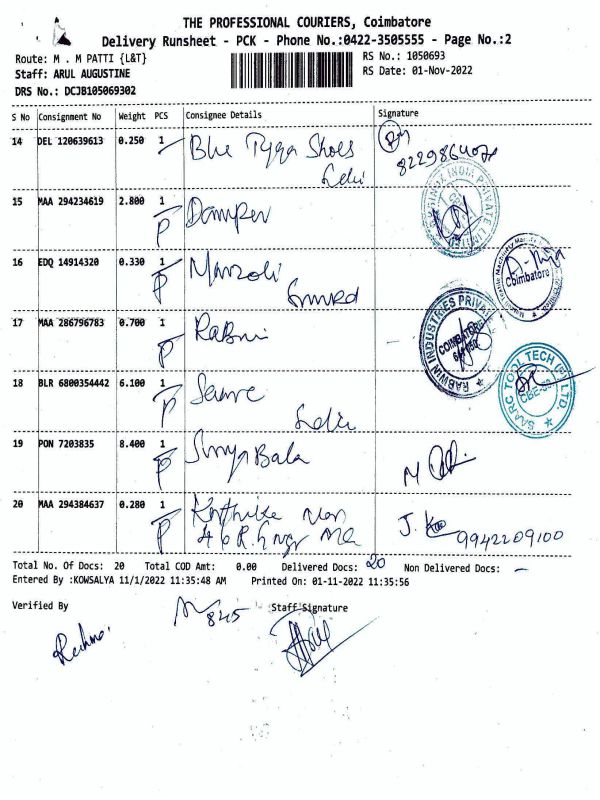 THE PROFESSIONAL COURIERS, Coimbatore
Delivery Runsheet - PCK - Phone No.:0422-3505555 - Page No.:2
Route: M . M PATTI {L&T} RS No.: 1050693
Staff: ARUL AUGUSTINE RS Date: 01-Nov-2022
DRS No.: DCJB105069302
S No Consignment No Weight PCS Consignee Details Signature
14 DEL 120639613 0.250 1 Blue Tyga Shoes
15 MAA 294234619 2.800 1 Damper
P
16 EDQ 14914320 0.330 1 Marzoli
P Coimbatore
17 MAA 286796783 0.700 1 Rabwin
P RABWIN INDUSTRIES PRIVATE COIMBATORE
18 BLR 6800354442 6.100 1
P SAARC TOOL TECH (P) LTD. CBE
19 PON 7203835 8.400 1 Surya Bala
P
20 MAA 294384637 0.280 1
P 9942209100
Total No. Of Docs: 20 Total COD Amt: 0.00 Delivered Docs: 20 Non Delivered Docs: -
Entered By :KOWSALYA 11/1/2022 11:35:48 AM Printed On: 01-11-2022 11:35:56
Verified By 845 Staff Signature